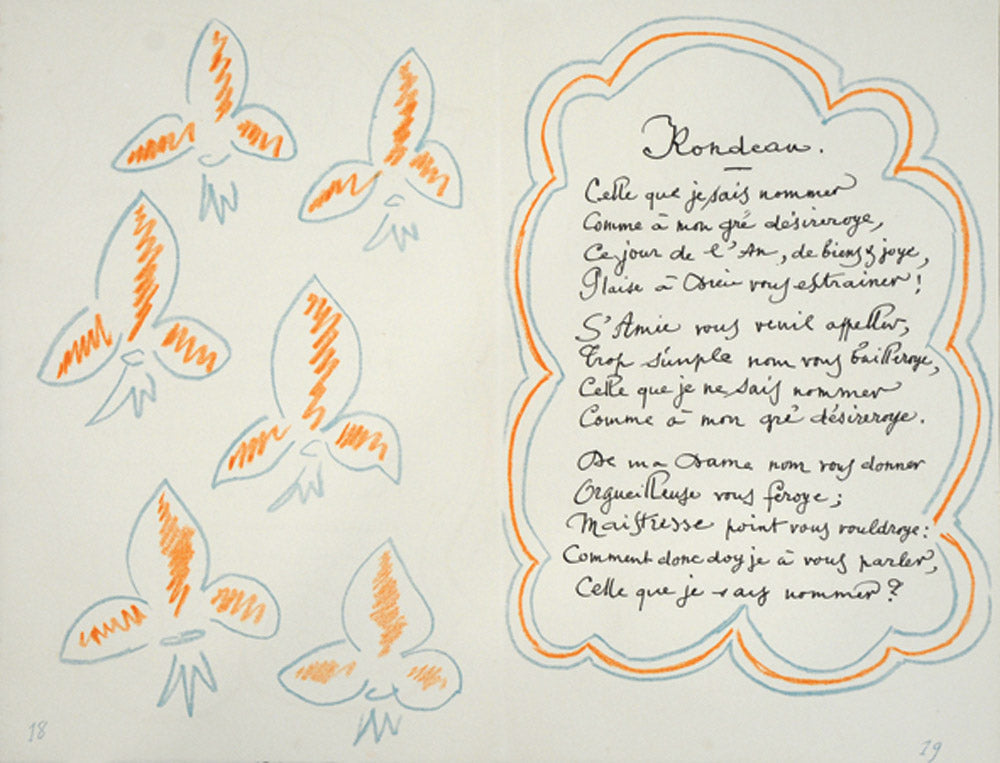 18
Rondeau.
Celle que je sais nommer
Comme à mon gré désireroye,
Ce jour de l'An, de biens & joye,
Plaise à Dieu vous estrainer!
S'Amie vous veuil appeller,
Trop simple nom vous bailleroye,
Celle que je ne sais nommer
Comme à mon gré désireroye.
De ma Dame nom vous donner
Orgueilleuse vous feroye;
Maistresse point vous vouldroye:
Comment donc doy je à vous parler,
Celle que je sais nommer?
19